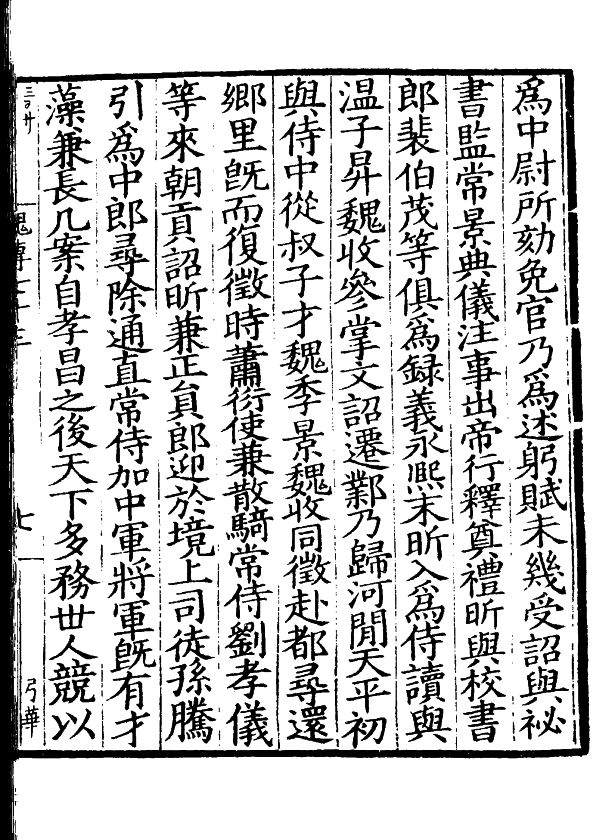 爲中尉所劾免官乃爲述躬賦未幾受詔與祕
書監常景典儀注事出帝行釋奠禮昕與校書
郎裴伯茂等俱爲録義永熙末昕入爲侍讀與
温子昇魏收參掌文詔遷鄴乃歸河閒天平初
與侍中從叔子才魏季景魏收同徵赴都尋還
鄉里旣而復徵時蕭衍使兼散騎常侍劉孝儀
等來朝貢詔昕兼正員郎迎於境上司徒孫騰
引爲中郎尋除通直常侍加中軍將軍旣有才
藻兼長几案自孝昌之後天下多務丗人競以
魏傳七十三
七
弓華